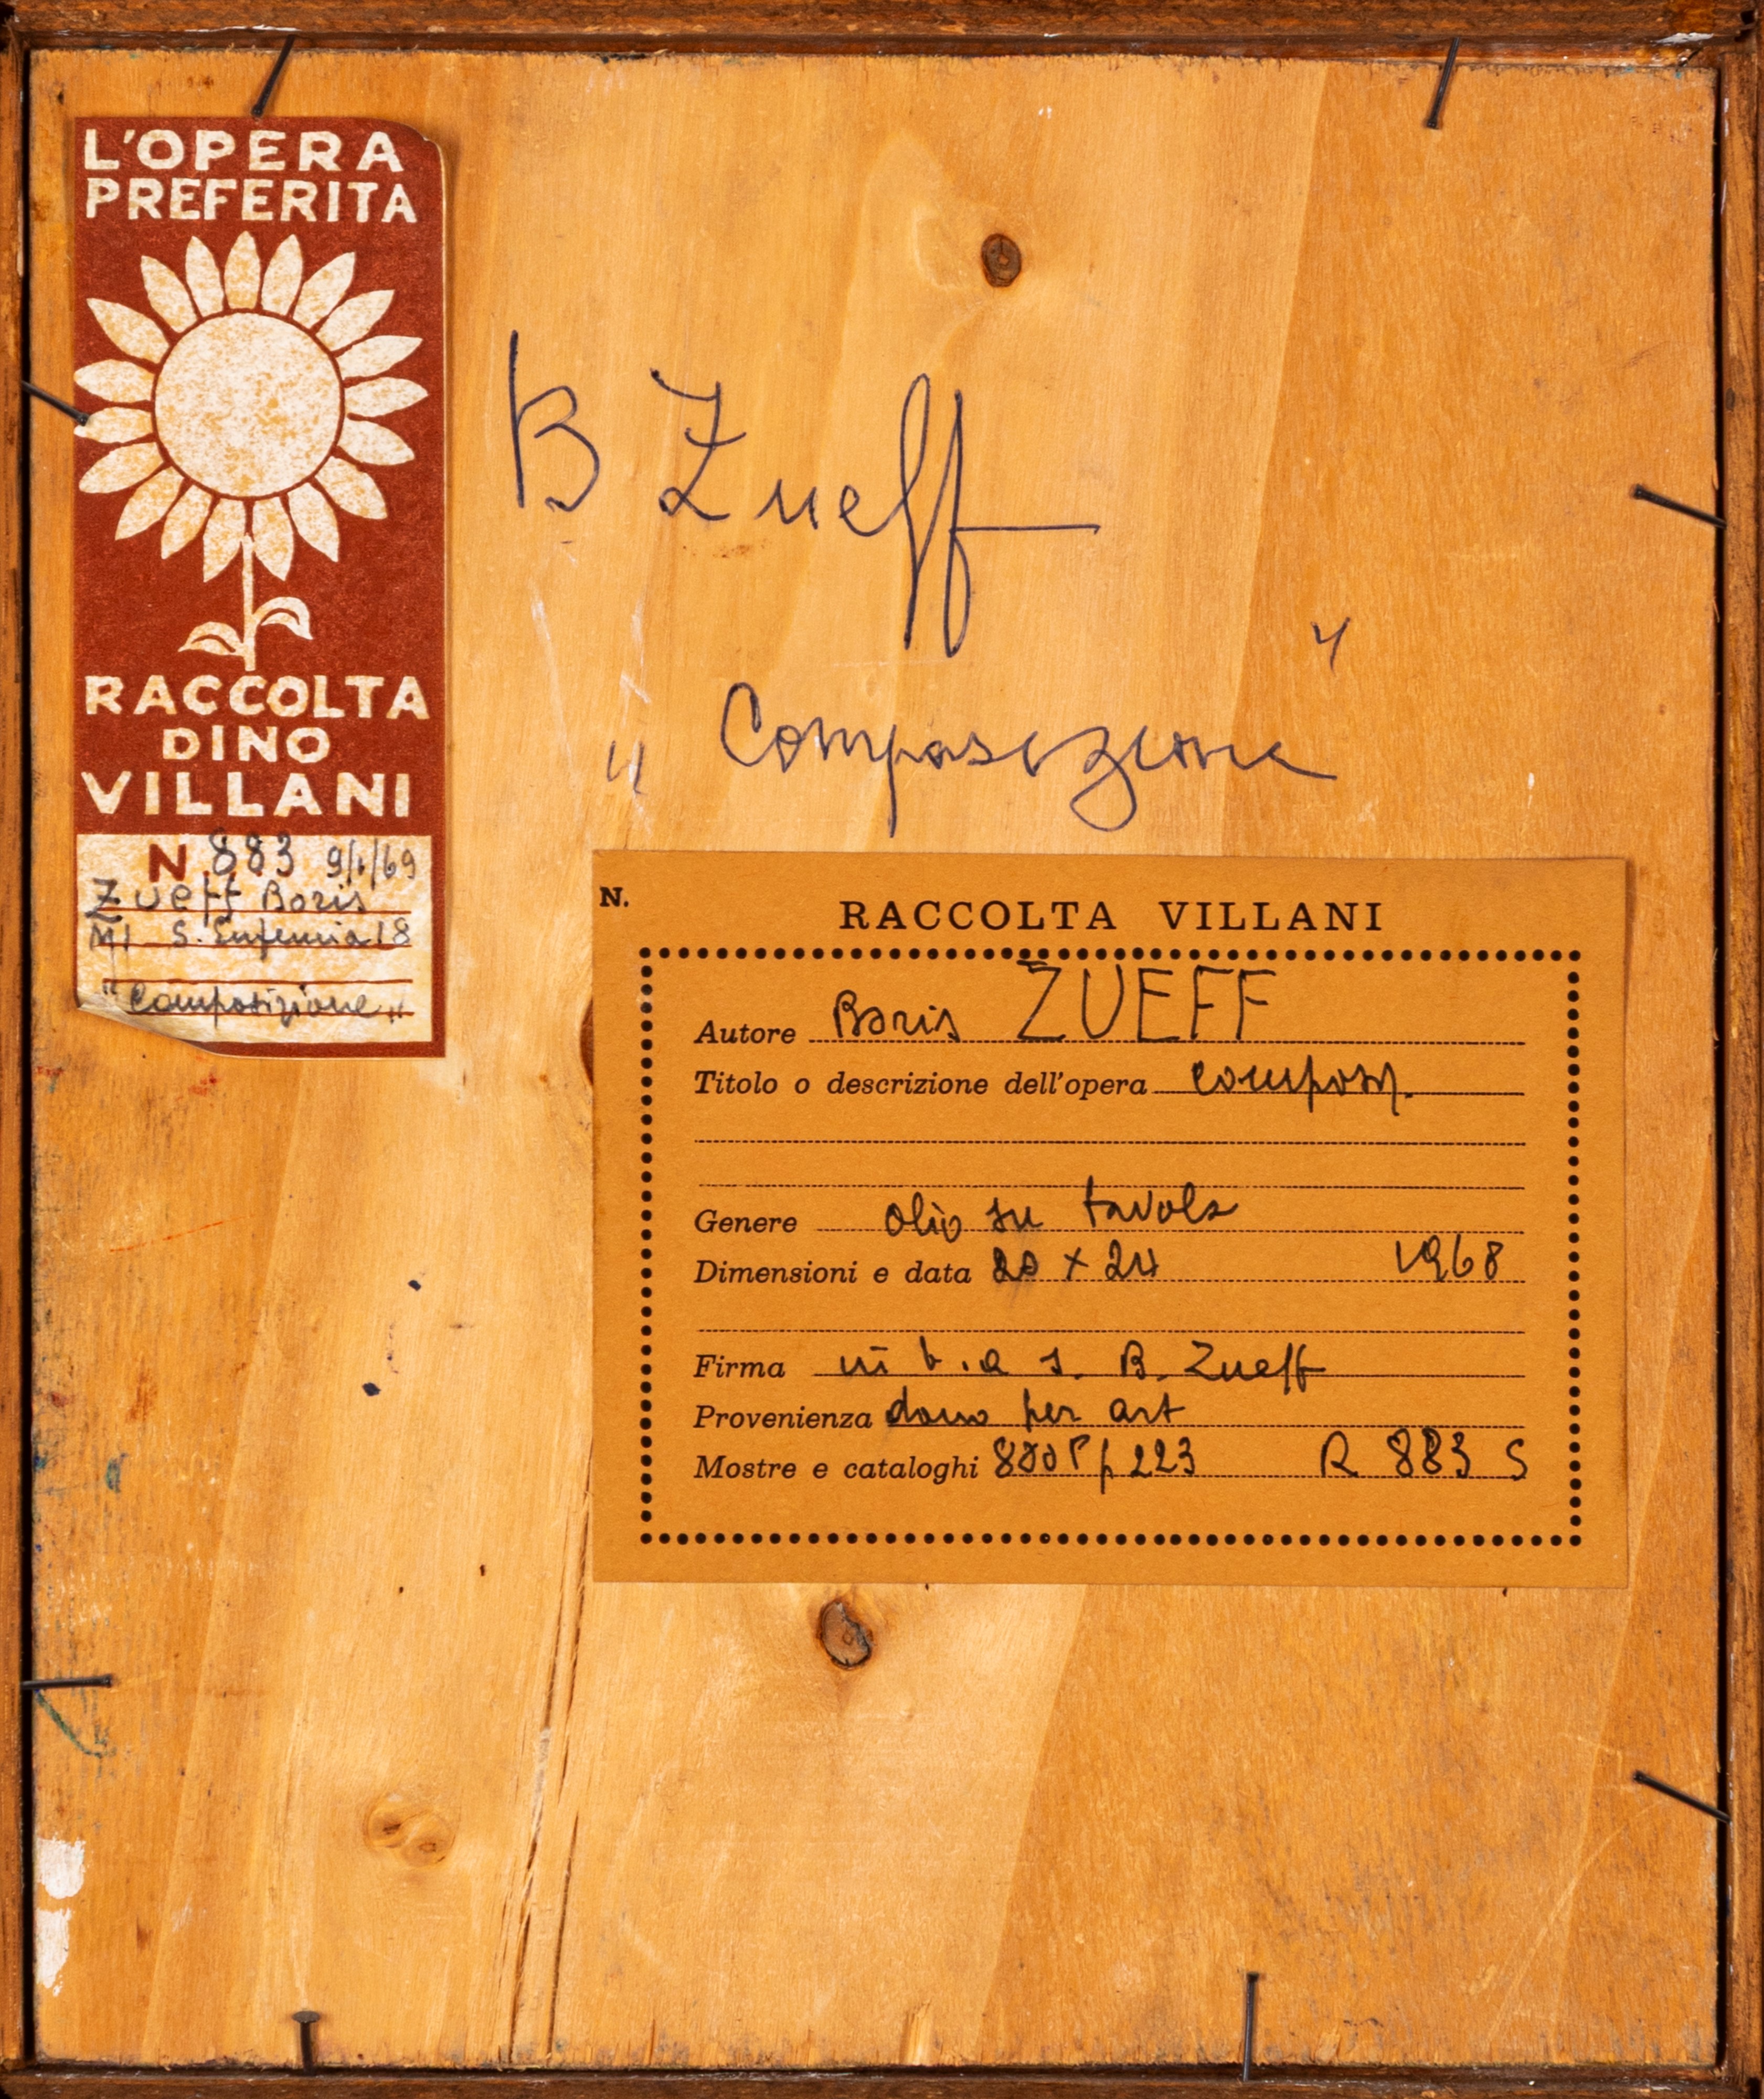 L'OPERA
PREFERITA
RACCOLTA
DINO
VILLANI
N 883 9/1/69
Zueff Boris
MI S. Eufemia 18
"Composizione"
B Zueff
"Composizione"
N.
RACCOLTA VILLANI
Autore Boris ZUEFF
Titolo o descrizione dell'opera compos.
Genere olio su tavola
Dimensioni e data 20 x 24 1968
Firma in b. a s. B. Zueff
Provenienza dono per art
Mostre e cataloghi p 223 R 883 S